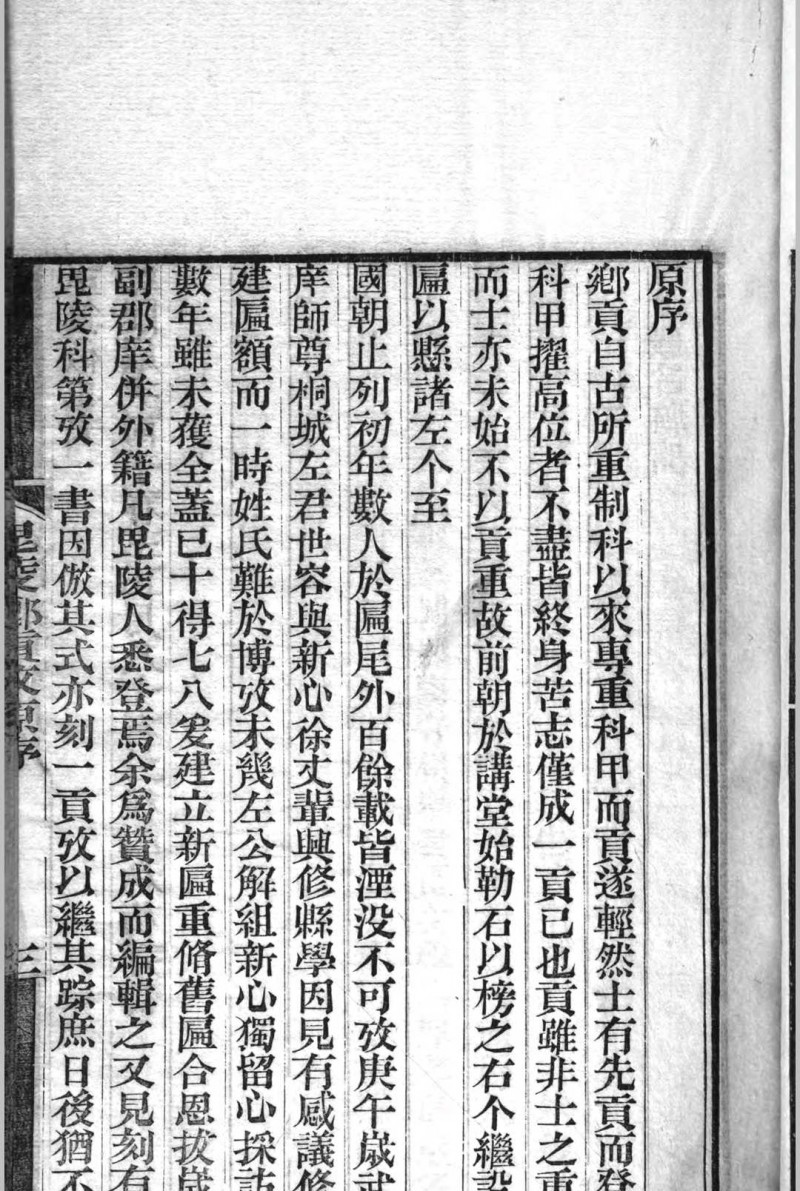 原序
鄉貢自古所重制科以來專重科甲而貢遂輕然士有先貢而登
科甲擢高位者不盡皆終身苦志僅成一貢已也貢雖非士之重
而士亦未始不以貢重故前朝於講堂始勒石以榜之右个繼設
匾以懸諸左个至
國朝止列初年數人於匾尾外百餘載皆湮没不可攷庚午歲武
庠師尊桐城左君世容與新心徐丈輩興修縣學因見有感議修
建匾額而一時姓氏難於博攷未幾左公解組新心獨留心採訪
數年雖未獲全蓋已十得七八爰建立新匾重脩舊匾合恩拔歲
副郡庠併外籍凡毘陵人悉登焉余爲贊成而編輯之又見刻有
毘陵科第攷一書因倣其式亦刻一貢攷以繼其踪庶日後猶不
毘陵鄉貢攷原序
三